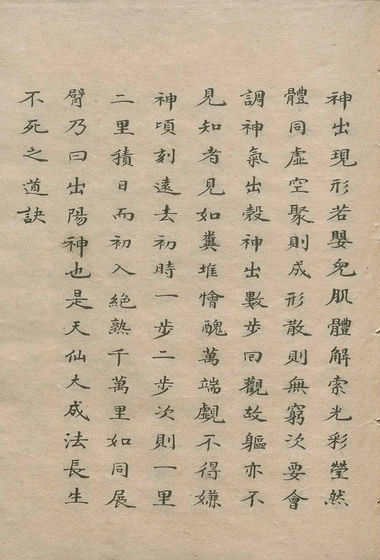 神出現形若嬰兒肌體解索光彩瑩然
體同虛空聚則成形散則無窮次要會
調神氣出殼神出數步回觀故軀亦不
見知者見如糞堆憎醜萬端覷不得嫌
神頃刻遠去初時一步二步次則一里
二里積日而初入絕熟千萬里如同展
臂乃曰出陽神也是天仙大成法長生
不死之道訣